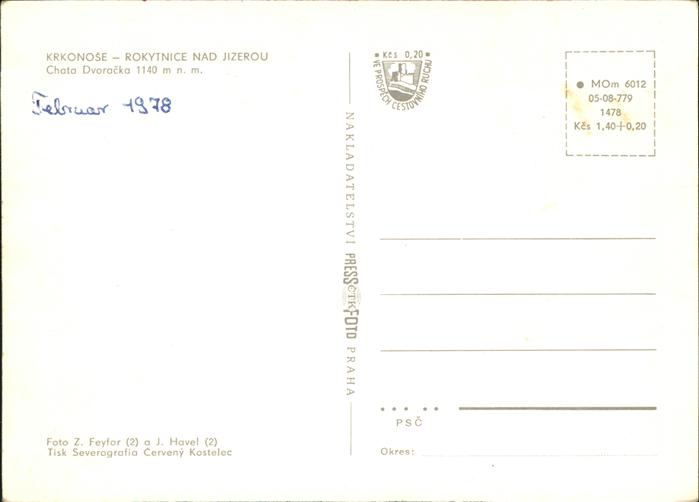 KRKONOŠE – ROKYTNICE NAD JIZEROU
Chata Dvoračka 1140 m n. m.
Februar 1978
Foto Z. Feyfar (2) a J. Havel (2)
Tisk Severografia Červený Kostelec
NAKLADATELSTVÍ PRESSFOTO PRAHA
ČTK
Kčs 0,20
VE PROSPĚCH CESTOVNÍHO RUCHU
● MOm 6012
05-08-779
1478
Kčs 1,40+0,20
PSČ
Okres: